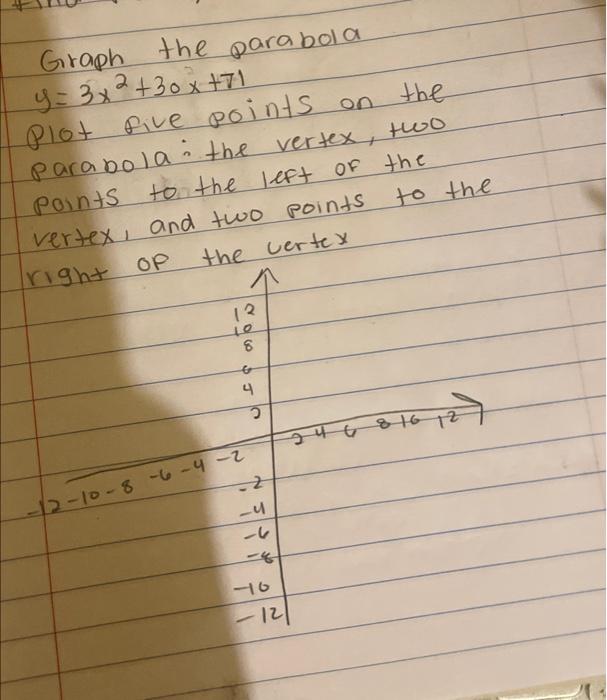 Graph the parabola
y = 3x² + 30x + 71
Plot five points on the
parabola: the vertex, two
points to the left of the
vertex, and two points to the
right of the vertex
12
10
8
6
4
2
2 4 6 8 10 12
-12 -10 -8 -6 -4 -2
-2
-4
-6
-8
-10
-12